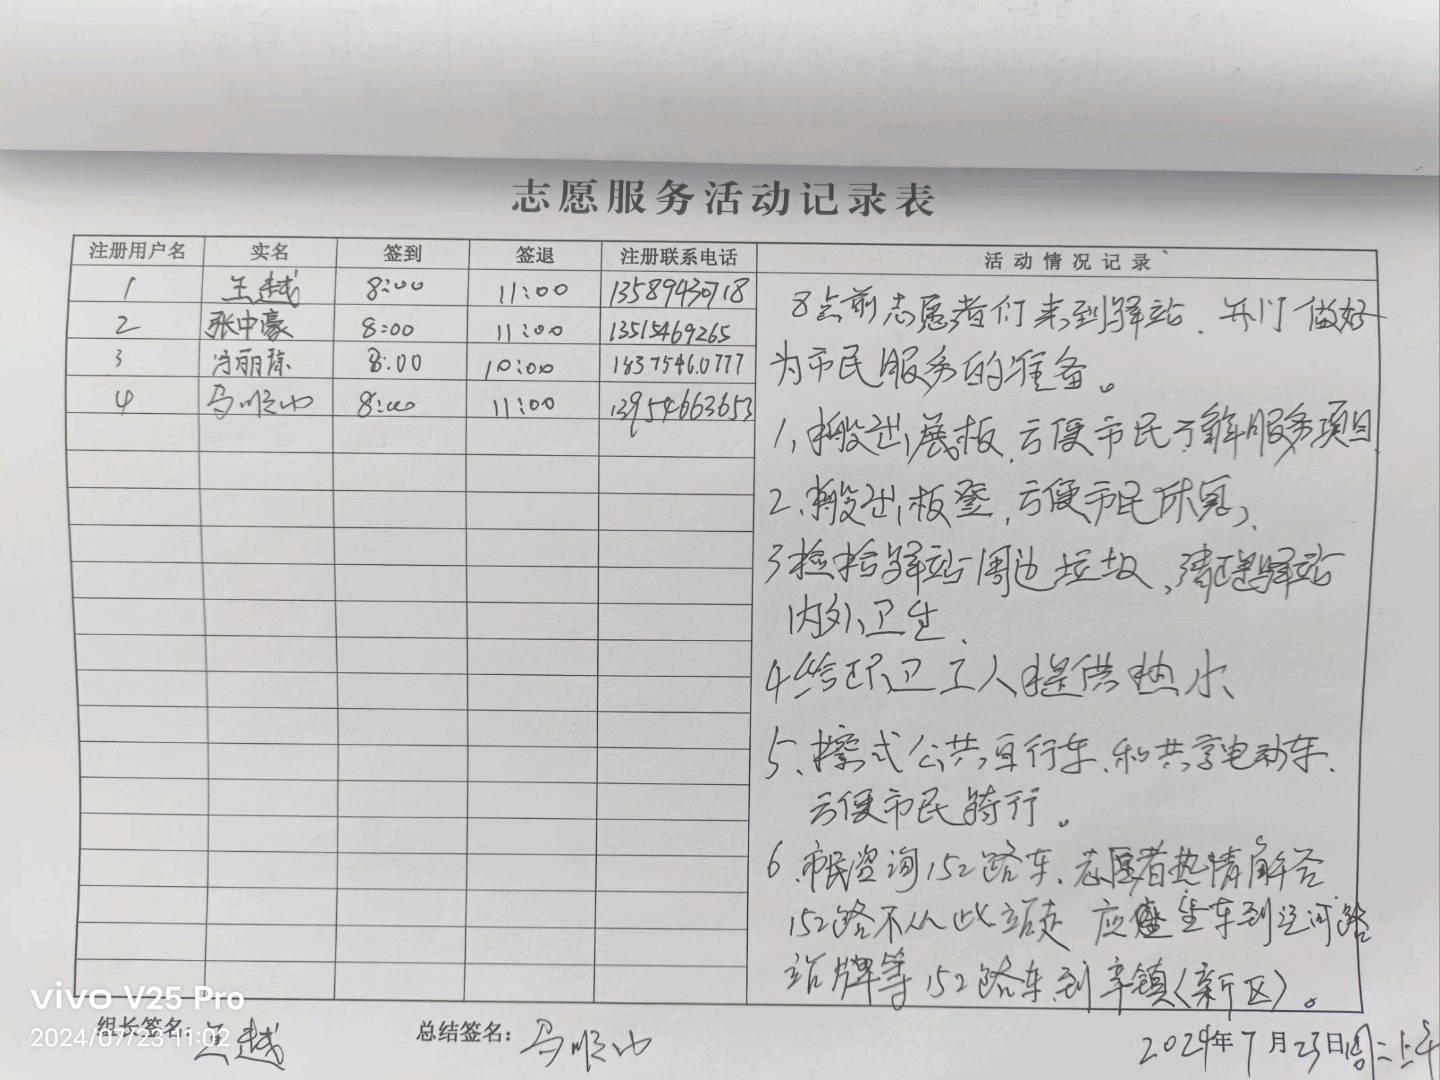 志愿服务活动记录表
注册用户名 实名 签到 签退 注册联系电话 活动情况记录
1 王越 8:00 11:00 13589430718
2 张中豪 8:00 11:00 13515469265
3 冯丽 8:00 10:00 18375460777
4 马顺 8:00 11:00 13954663653
8点前志愿者们来到驿站、开门做好
为市民服务的准备。
1、搬出展板、方便市民了解服务项目
2、搬出板登、方便市民休息、
3检拾驿站周边垃圾、清理驿站
内外卫生、
4给环卫工人提供热水、
5、擦式公共自行车、和共享电动车、
方便市民骑行。
6、市民咨询152路车、志愿者热情解答
152路不从此站走 应 坐车到运河路
站牌等152路车到辛镇(新区)。
组长签名: 王越
总结签名: 马顺
2024年7月23日周二上午
vivo V25 Pro
2024/07/23 11:02